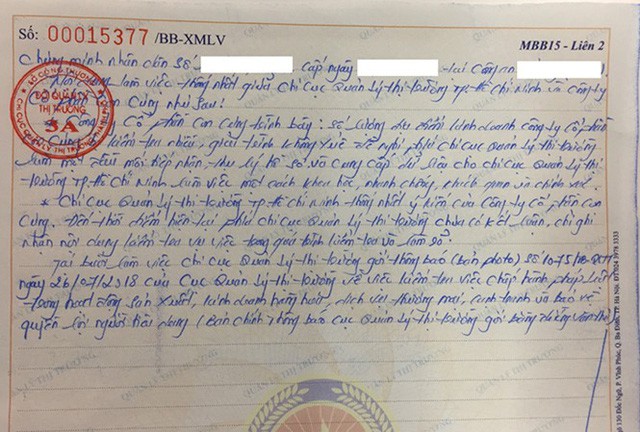 Số: 00015377 /BB-XMLV
MBB15 - Liên 2
Chứng minh nhân dân số cấp ngày tại Công an
Nội dung làm việc thống nhất giữa Chi Cục Quản Lý thị trường TP. Hồ Chí Minh và Công ty
Cổ phần Con Cưng như sau!
* Công ty Cổ phần Con Cưng trình bày: số lượng địa điểm kinh doanh Công ty Cổ phần
Con Cưng kiểm tra nhiều, giải trình đề nghị phía Chi cục Quản Lý thị trường
làm một đầu mối tiếp nhận thụ lý hồ sơ và cung cấp dữ liệu cho Chi cục Quản Lý thị
trường TP. Hồ Chí Minh làm việc một cách khoa học, nhanh chóng, khách quan và chính xác.
* Chi Cục Quản Lý thị trường TP. Hồ Chí Minh thống nhất ý kiến của Công ty Cổ phần Con
Cưng. Đến thời điểm hiện tại phía Chi Cục Quản Lý thị trường chưa có kết luận, chỉ ghi
nhận nội dung kiểm tra vụ việc trong quá trình kiểm tra và làm rõ.
Tại buổi làm việc Chi Cục Quản Lý thị trường gởi thông báo (bản photo) số
ngày 26/07/2018 của Cục Quản Lý thị trường về việc kiểm tra việc chấp hành pháp luật
trong hoạt động sản xuất, kinh doanh hàng hóa, dịch vụ thương mại, cạnh tranh và bảo vệ
quyền lợi người tiêu dùng (bản chính thông báo Cục Quản Lý thị trường gởi bằng đường văn thư).
BỘ CÔNG THƯƠNG
ĐỘI QUẢN LÝ
THỊ TRƯỜNG
3A
QUẢN LÝ THỊ TRƯỜNG
Số 130 Đốc Ngữ, P. Vĩnh Phúc, Q. Ba Đình, TP. Hà Nội. ĐT: 024 3978 3333